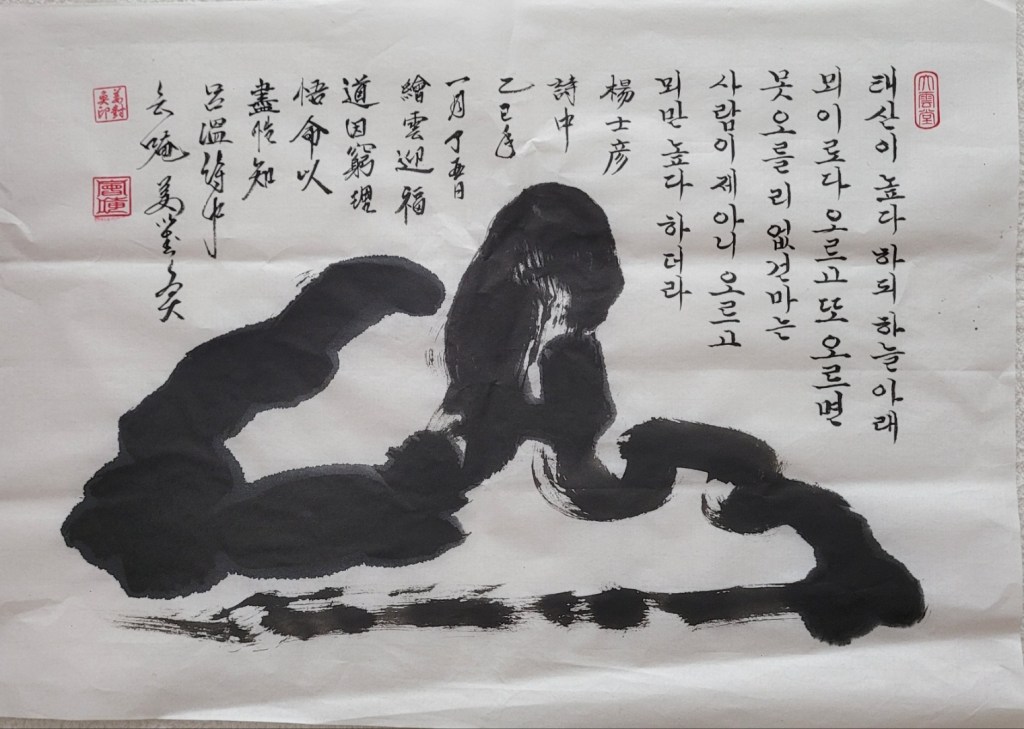 大雲堂
태산이 높다 하되 하늘아래
뫼이로다 오르고 또 오르면
못오를리 없건마는
사람이 제아니 오르고
뫼만 높다 하더라
楊士彦
詩中
乙巳年
一月 丁 日
繪雲迎福
道因窮理
悟命以
盡性知
呂溫詩中